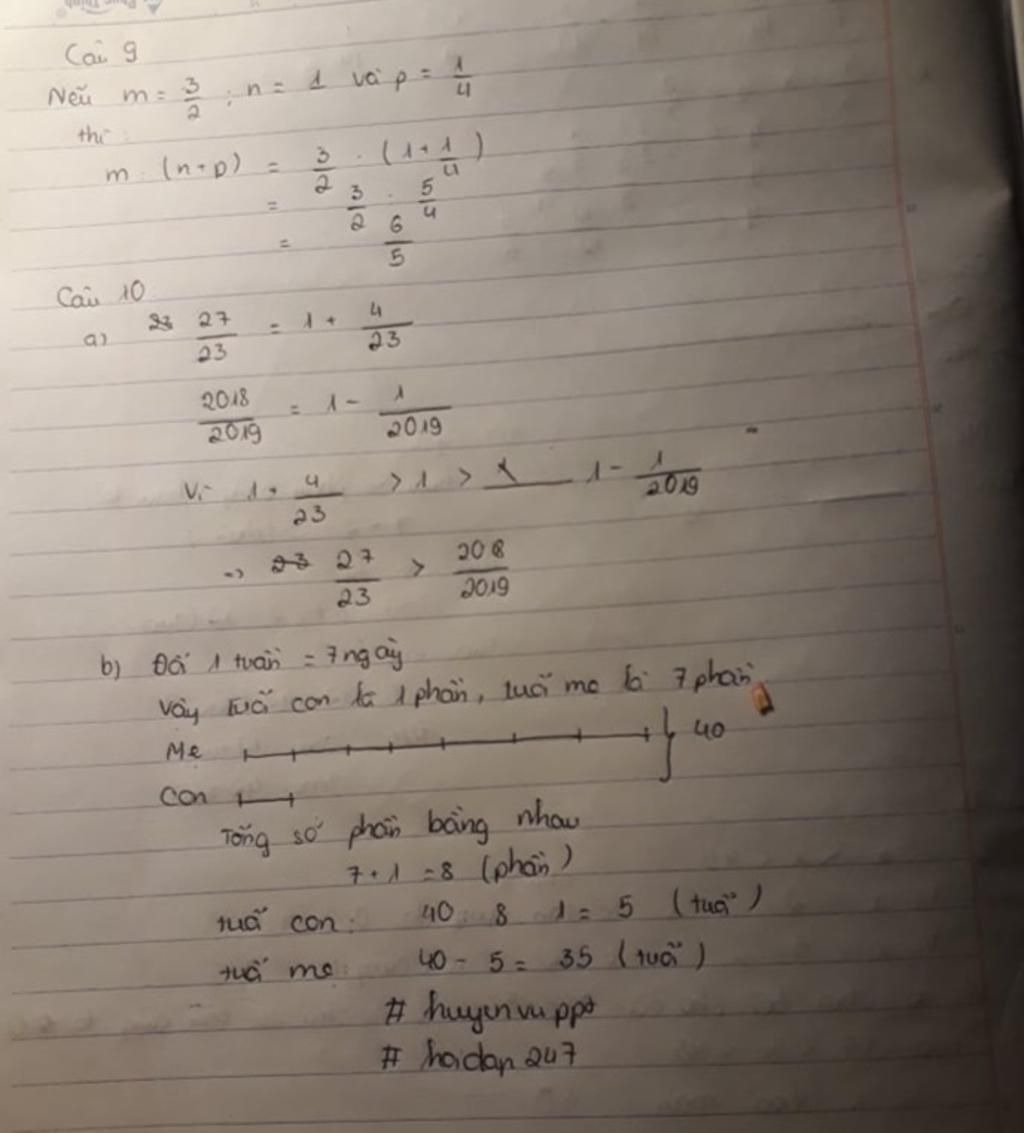 Câu 9
Nếu m = 3/2 ; n = 1 và p = 1/4
thì :
m : (n + p) = 3/2 : (1 + 1/4)
= 3/2 : 5/4
= 6/5
Câu 10
a) 27/23 = 1 + 4/23
2018/2019 = 1 - 1/2019
Vì 1 + 4/23 > 1 > 1 - 1/2019
=> 27/23 > 208/2019
b) Đổi 1 tuần = 7 ngày
Vậy tuổi con là 1 phần, tuổi mẹ là 7 phần
Mẹ 40
Con
Tổng số phần bằng nhau
7 + 1 = 8 (phần)
tuổi con : 40 8 1 = 5 (tuổi)
tuổi mẹ : 40 - 5 = 35 (tuổi)
# huyenvuppt
# hoidap247